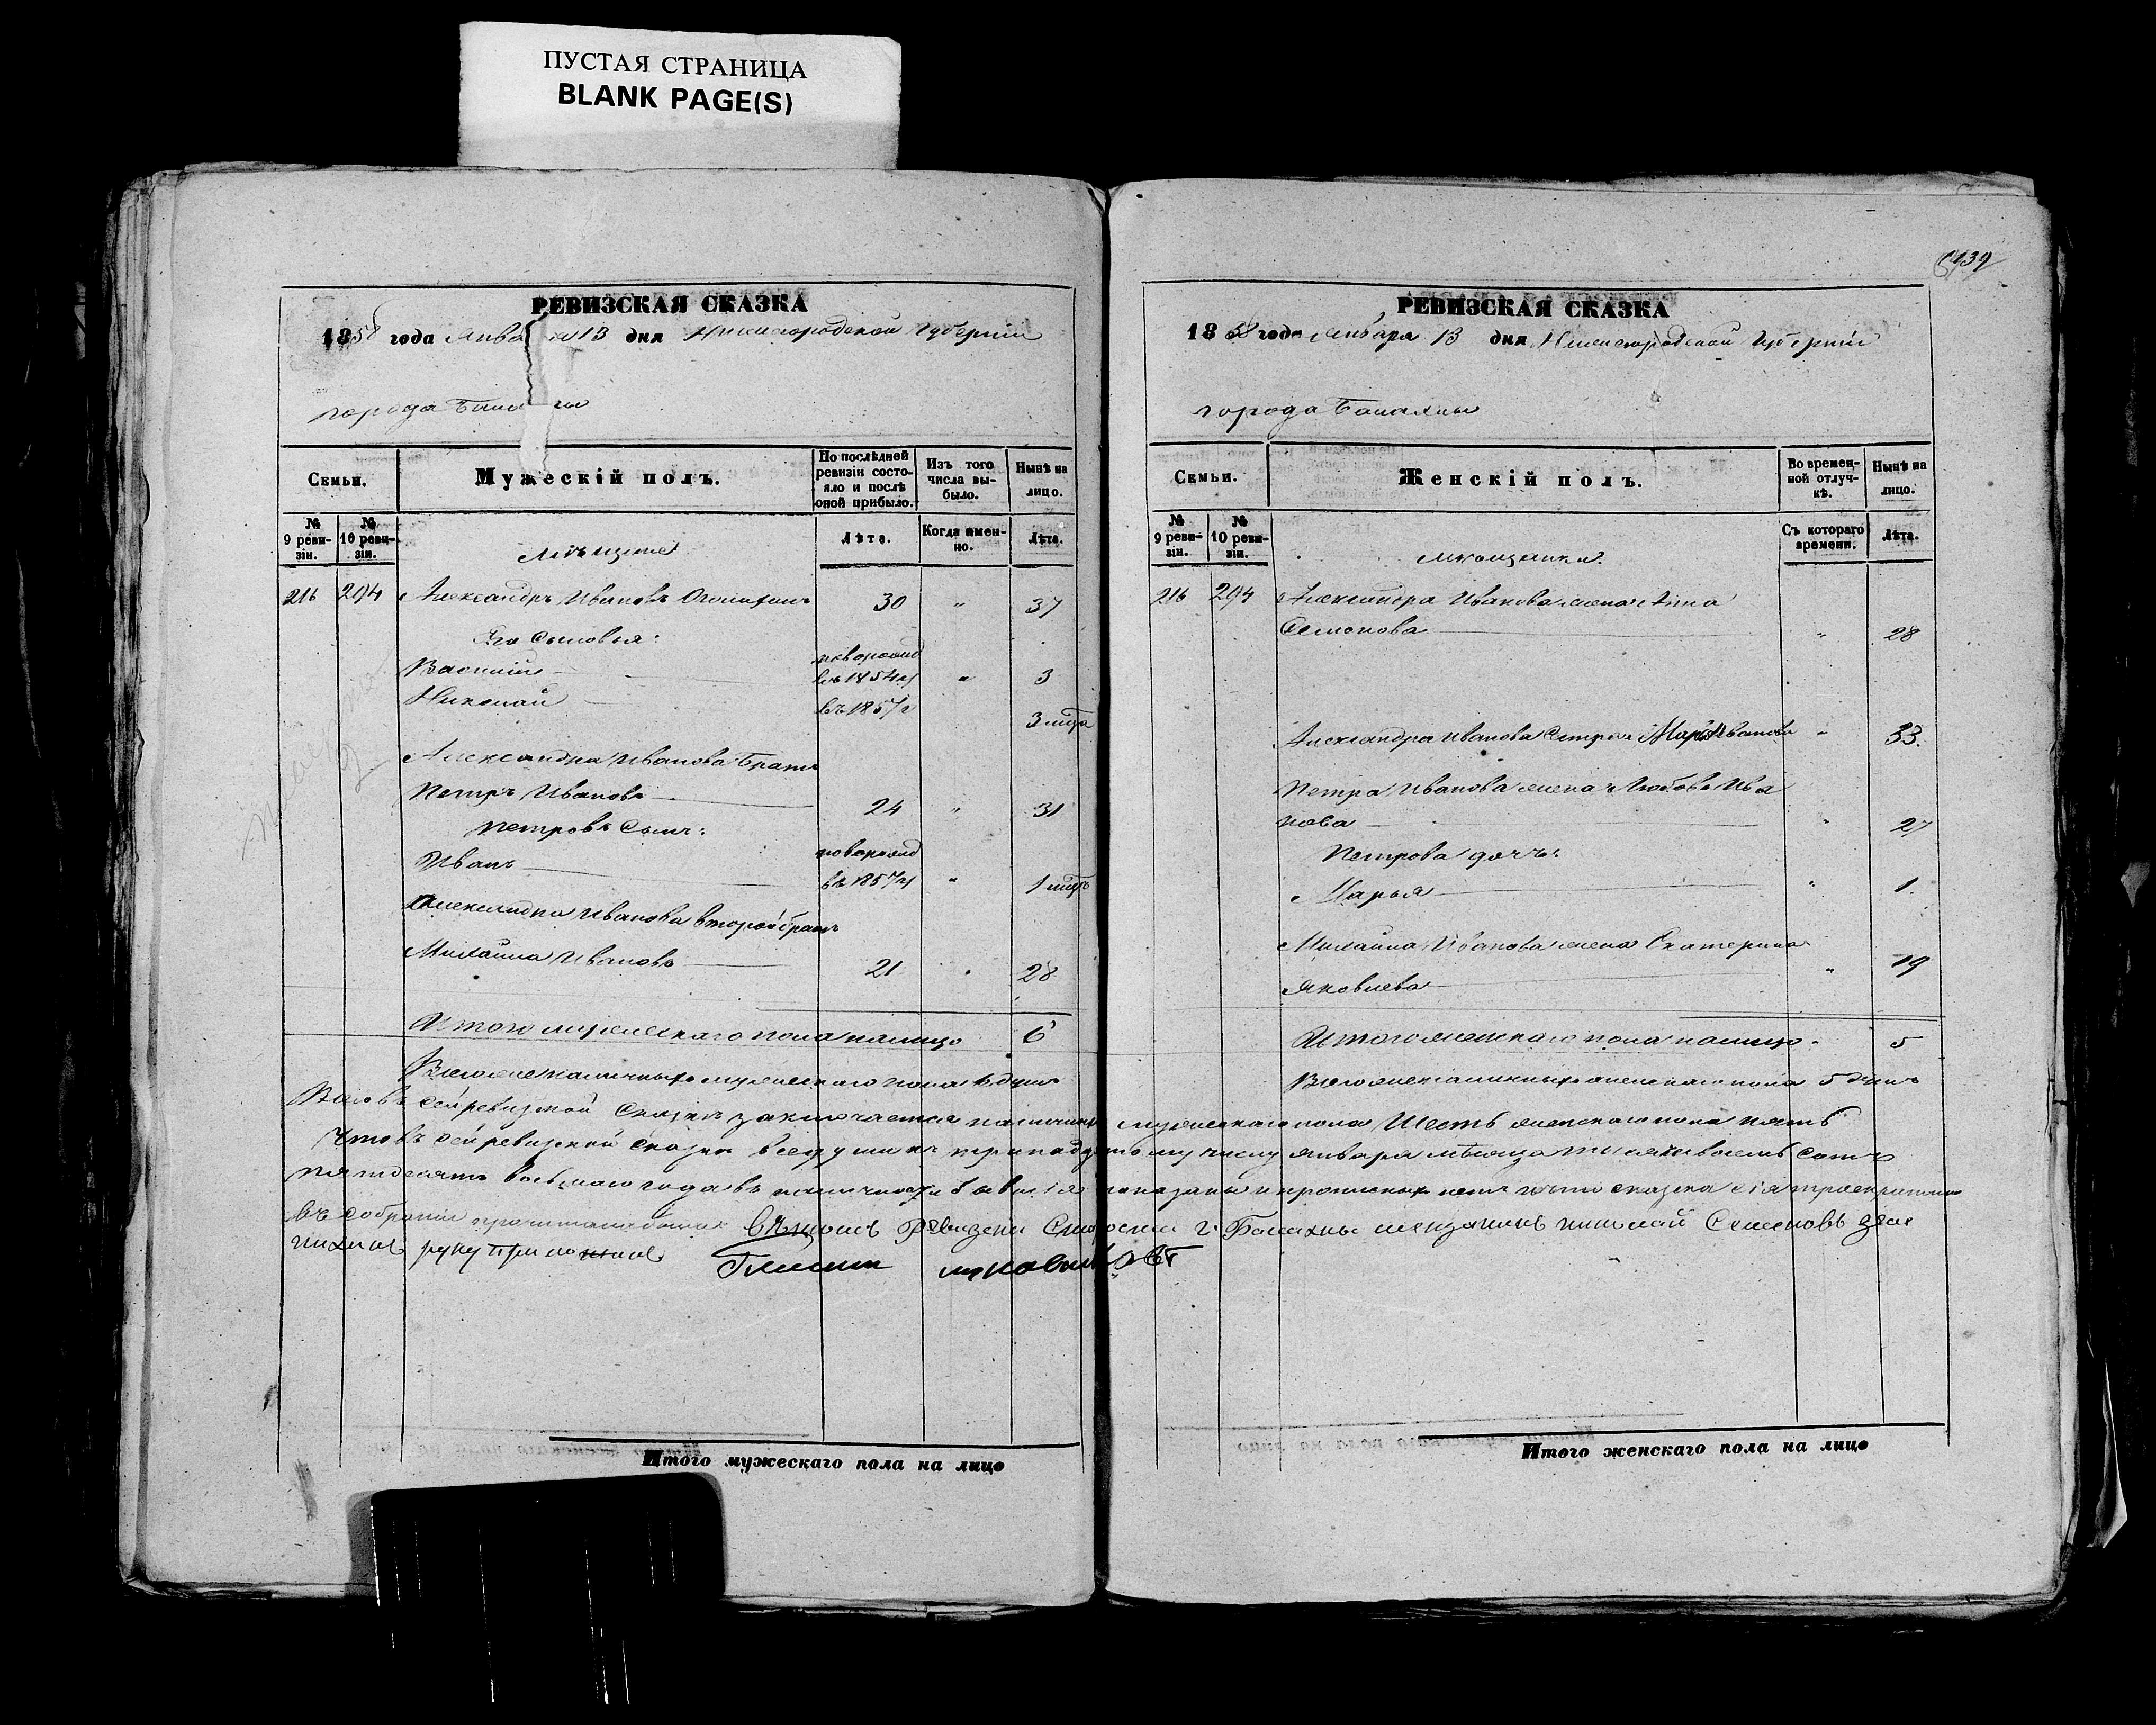 ПУСТАЯ СТРАНИЦА
BLANK PAGE(S)
РЕВИЗСКАЯ СКАЗКА
1858 года Янва 13 дня Нижегородской Губерніи
города Бала ны
Семьи.
Мужескій полъ.
По послѣдней ревизіи состояло и послѣ оной прибыло.
Изъ того числа выбыло.
Нынѣ на лицо.
№ 9 ревизіи.
№ 10 ревизіи.
Мѣщане
Лѣта.
Когда именно.
Лѣта.
216 294 Александръ Ивановъ 30 " 37
Его сыновья:
Василій новорожд въ 1854 " 3
Николай въ 1857 г
Александра Иванова братъ
Петръ Ивановъ 24 " 31
Петровъ сынъ:
Иванъ новорожд въ 1857 " 1
Александра Иванова второй братъ
Михайла Ивановъ 21 " 28
Итого мужескаго пола налицо 6
наличныхъ мужескаго пола 6 душъ
Итого мужескаго пола на лицо
439
РЕВИЗСКАЯ СКАЗКА
1858 года Января 13 дня Нижегородской Губерніи
города Балахны
Семьи.
Женскій полъ.
Во временной отлучкѣ.
Нынѣ на лицо.
№ 9 ревизіи.
№ 10 ревизіи.
Мѣщанки.
Съ котораго времени.
Лѣта.
216 294 Александра Иванова жена Анна
Семенова " 28
Александра Иванова сестра Марья Иванова " 33.
Петра Иванова жена Любовь Ива
нова " 27
Петрова дочь:
Марья " 1.
Михайла Иванова жена Екатерина
Яковлева " 19
Итого женскаго пола налицо 5
наличныхъ женскаго пола 5 душъ
Всего въ сей ревизской сказкѣ заключается наличныхъ мужескаго пола шесть женскаго пола пять
Что въ сей ревизской сказкѣ все души къ тринадцатому числу января мѣсяца тысяча восемь сотъ
пятдесятъ восьмаго года въ наличности показаны и прописныхъ нетъ сказка сія
въ собраніи г. Балахны мещанинъ Николай Семеновъ
руку приложилъ
Итого женскаго пола на лицо